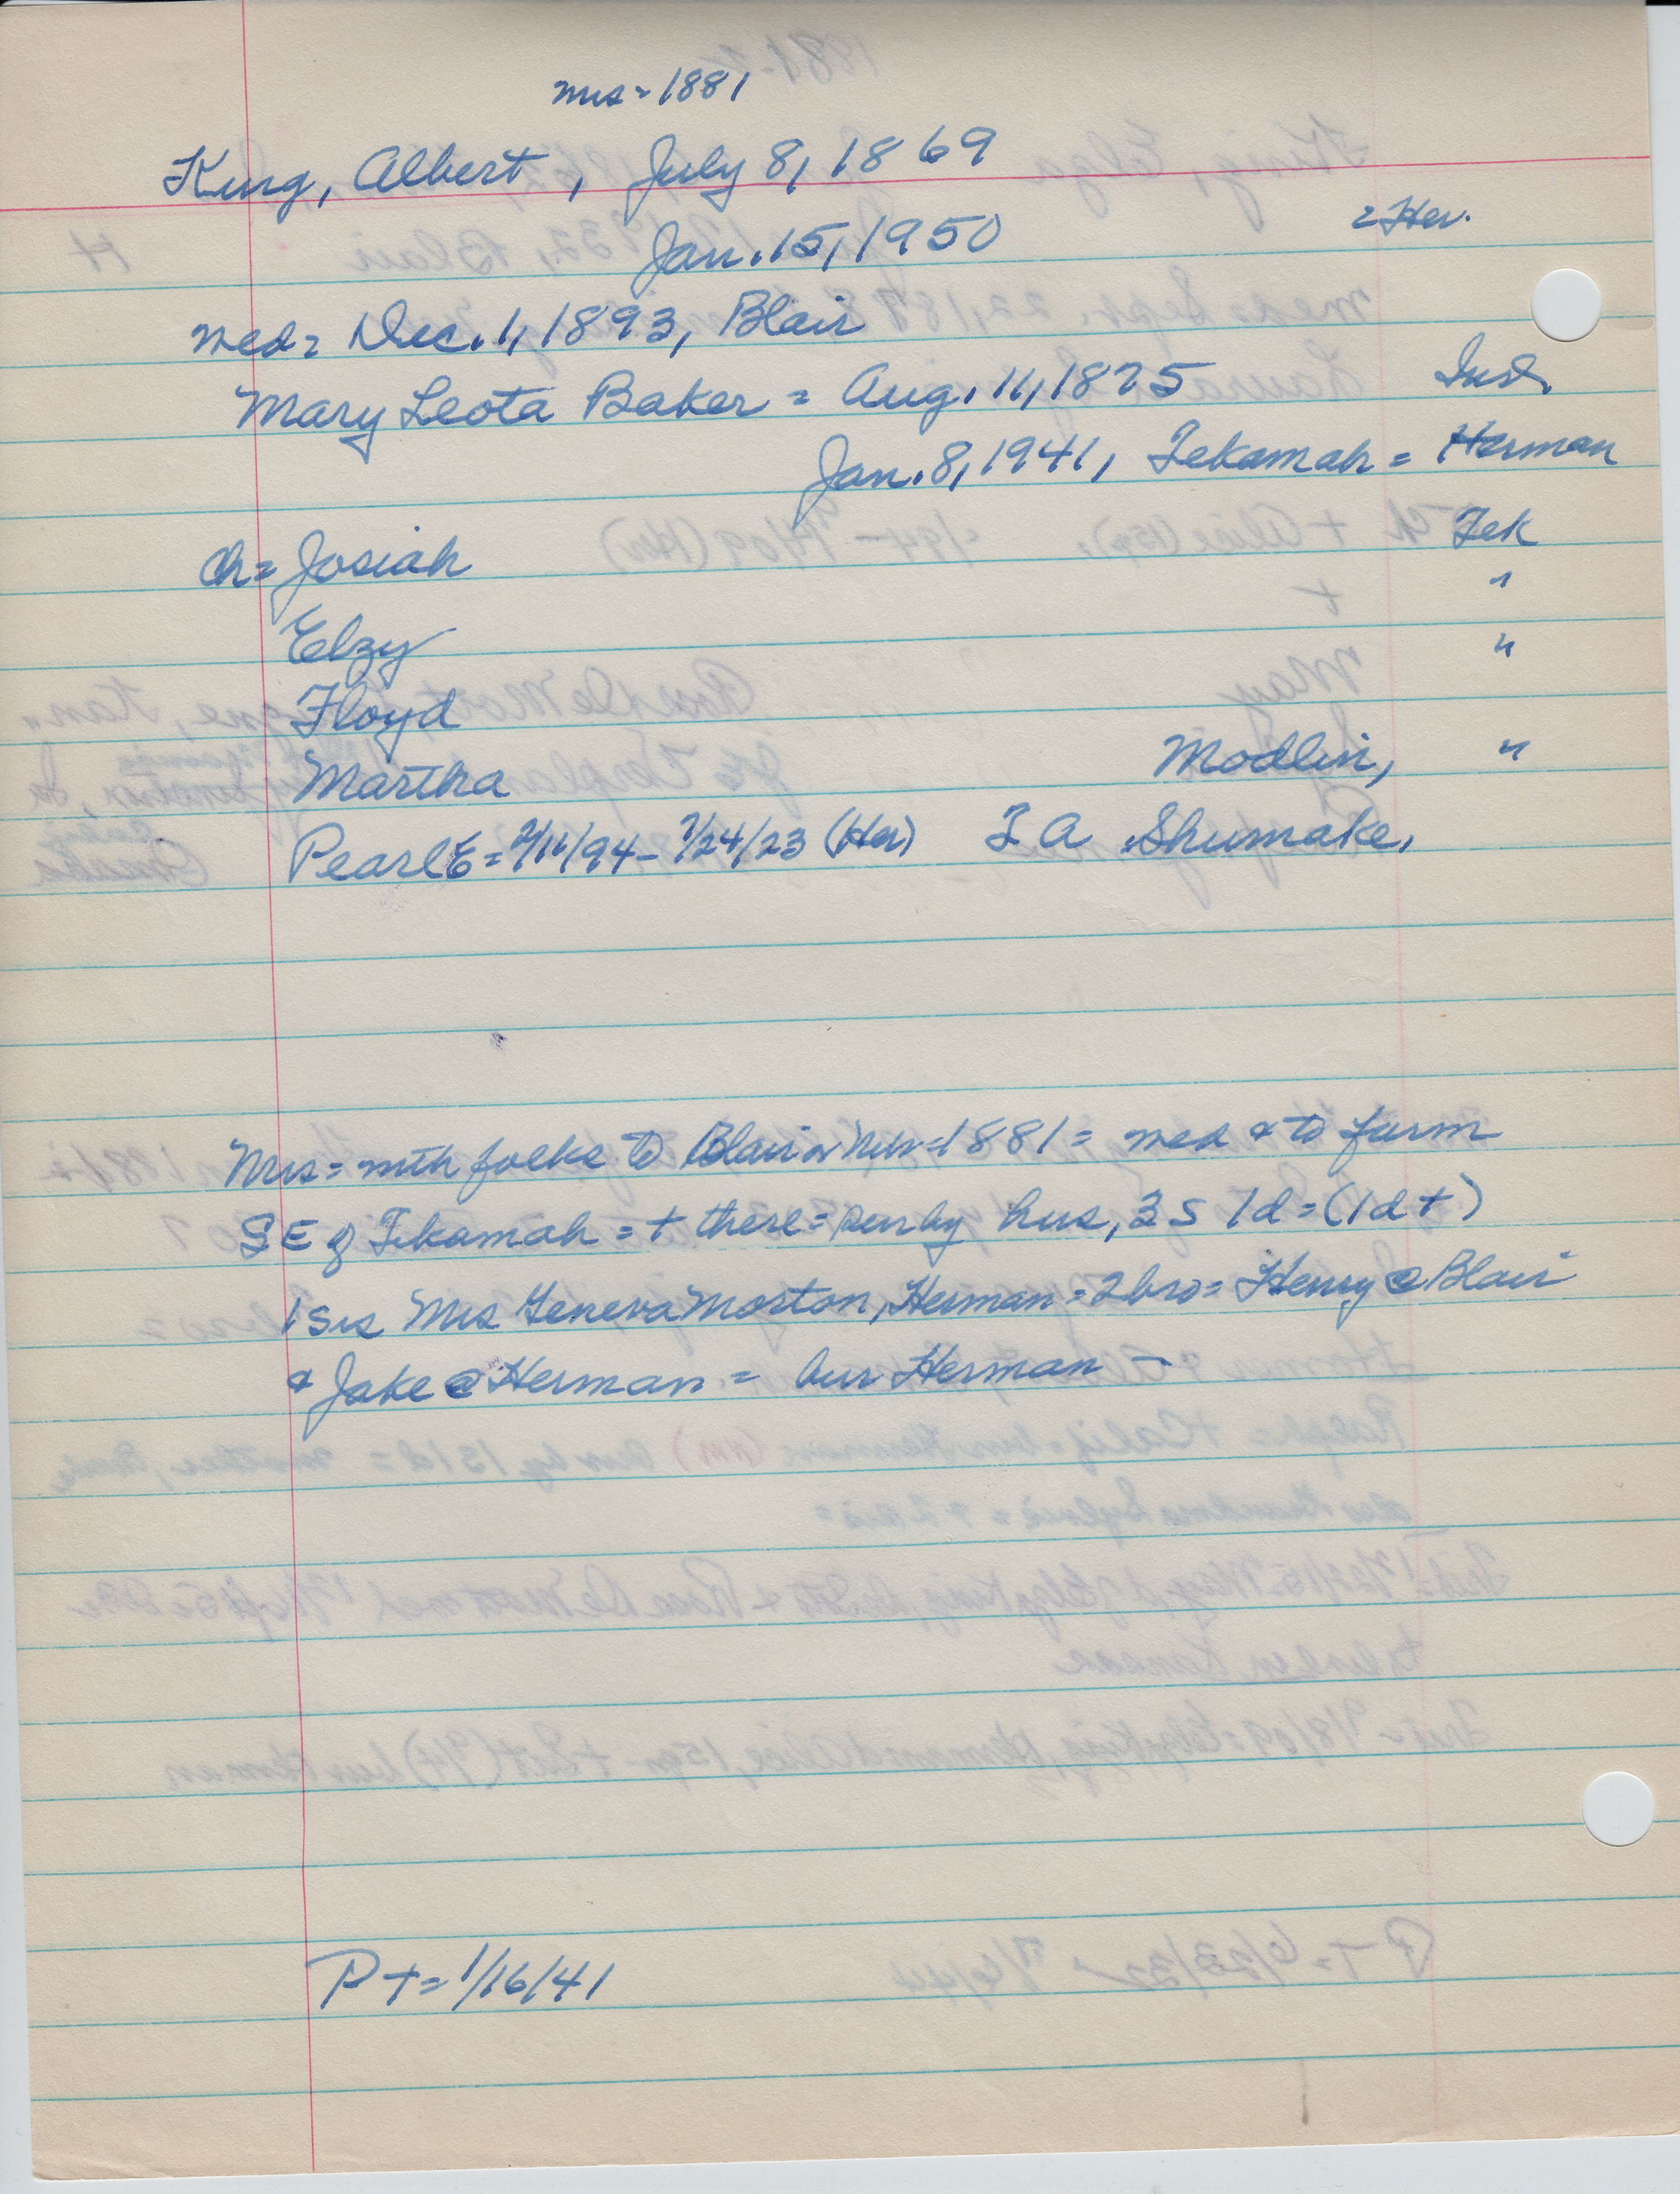 mrs = 1881
King, Albert, July 8, 1869
Jan. 15, 1950 = Her.
wed = Dec. 1, 1893, Blair
Mary Leota Baker = Aug. 11, 1875 Ind.
Jan. 8, 1941, Tekamah = Herman
ch = Josiah Tek
Elzy "
Floyd "
Martha Modlin, "
Pearl E = 2/16/94 - 7/24/23 (Her) I A Shumake,
Mrs = with folks to Blair 1881 = wed & to farm
SE of Tekamah = + there = sur by hus, 3 s 1 d = (1 d +)
1 sis Mrs Geneva Morton, Herman = 2 bro = Henry @ Blair
& Jake @ Herman = bur Herman -
P T = 1/16/41